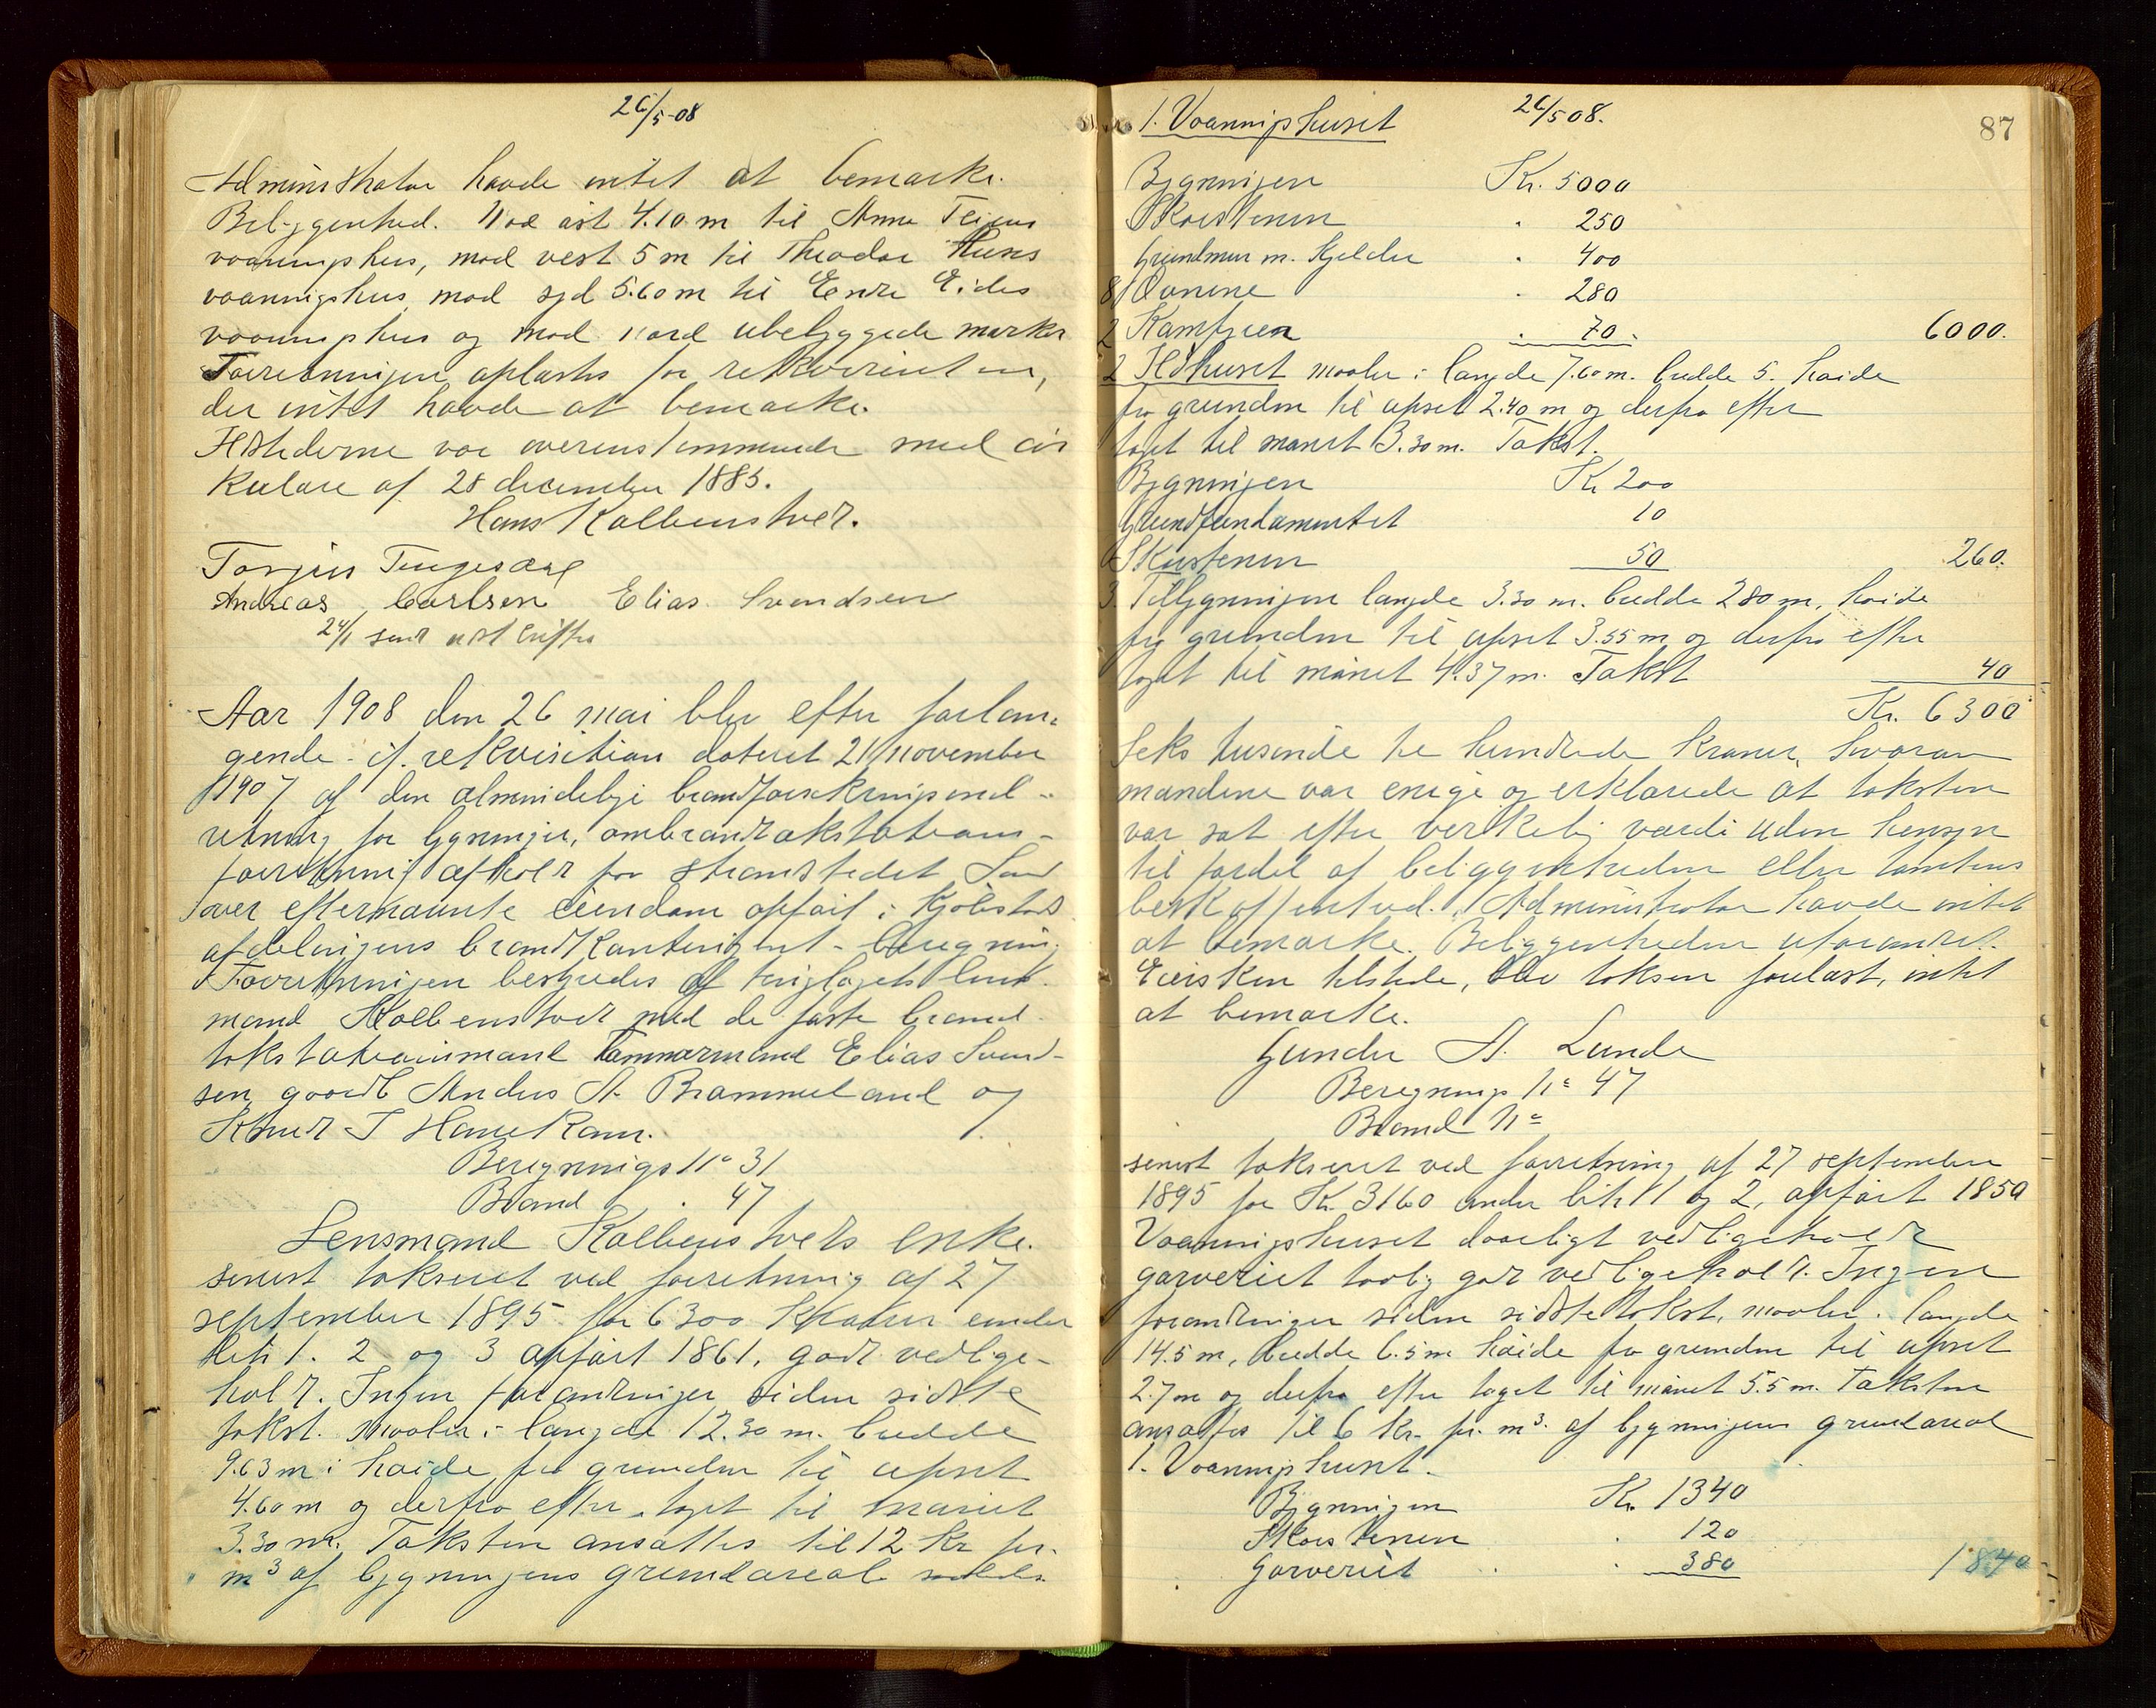 26/5-08
Administrator havde intet at bemærke.
Beliggenhed. Mod øst 4.10 m til Anna
vaaningshus, mod vest 5 m til Theodor
vaaningshus, mod syd 5.60 m til Endre Eides
vaaningshus og mod nord ubebyggede marker
Forretningen oplæstes for rekvirenten,
der intet havde at bemærke.
Ildstederne var overensstemmende med cir
kulære af 28 december 1885.
Hans Kolbenstvedt.
Torjus Tengesdal
Andreas Carlsen Elias Svendsen
24/1 sendt udskrifter
Aar 1908 den 26 mai blev efter forlan-
gende i rekvisition dateret 21 november
1907 af den almindelige brandforsikringsind-
retning for bygninger, ombrandtakstations-
forretning afholdt for strandstedet Sand
over efternævnte eiendom opført i Kjøbstads
afdelingens brandkontingent-beregning
Forretningen bestyredes af tinglagets lens-
mand Kolbenstvedt med de faste brand-
takstationsmænd Tømmermand Elias Svend-
sen, gaardb. Anders A. Brommeland og
Knud T Hauekam.
Beregnings No 31
Brand . 47
Lensmand Kolbenstvets enke.
senest takseret ved forretning af 27
september 1895 for 6300 Kroner under
litr 1. 2 og 3 opført 1861, godt vedlige-
holdt. Ingen forandringer siden sidste
takst. Maaler i længde 12.30 m. bredde
9.63 m i høide fra grunden til opset
4.60 m og derfra efter taget til mønet
3.30 m. Taksten ansattes til 12 Kr pr.
m3 af bygningens grundareal
1. Vaaningshuset 26/5 08. 87
Bygningen Kr. 5000
Skorstenen . 250
Grundmur m. Kjelder . 400
8 Ovnene . 280
2 Komfyrer . 70. 6000.
2 Ildhuset maaler: længde 7.60 m. bredde 5. høide
fra grunden til opset 2.40 m og derfra efter
taget til mønet 3.30 m. Takst.
Bygningen Kr 200
Grundfundamentet 10
Skorstenen 50 260.
3. Tilbygningen længde 3.30 m. bredde 280 m, høide
fra grunden til opset 3.55 m og derfra efter
taget til mønet 4.37 m. Takst 40
Kr. 6300
Seks tusende tre hundrede Kroner, hvorom
mændene var enige og erklærede at taksten
var sat efter verkelig værdi uden hensyn
til fordel af beliggenheden eller tomtens
beskaffenhed. Administrator havde intet
at bemærke. Beliggenheden uforandret.
Eiersken tilstede, blev taksen forelæst, intet
at bemærke.
Gunder A. Lunde
Beregnings No 47
Brand No
senest takseret ved forretning af 27 september
1895 for Kr. 3160 under litr 1 og 2, opført 1850
Vaaningshuset daarligt vedligeholdt
garveriet taalig godt vedligeholdt. Ingen
forandringer siden sidste takst, maaler. længde
14.5 m, bredde 6.5 m høide fra grunden til opset
2.7 m og derfra efter taget til mønet 5.5 m. Taksten
ansattes til 6 Kr. pr. m3. af bygningens grundareal
1. Vaaningshuset.
Bygningen Kr. 1340
Skorstenen . 120
Garveriet . 380 1840